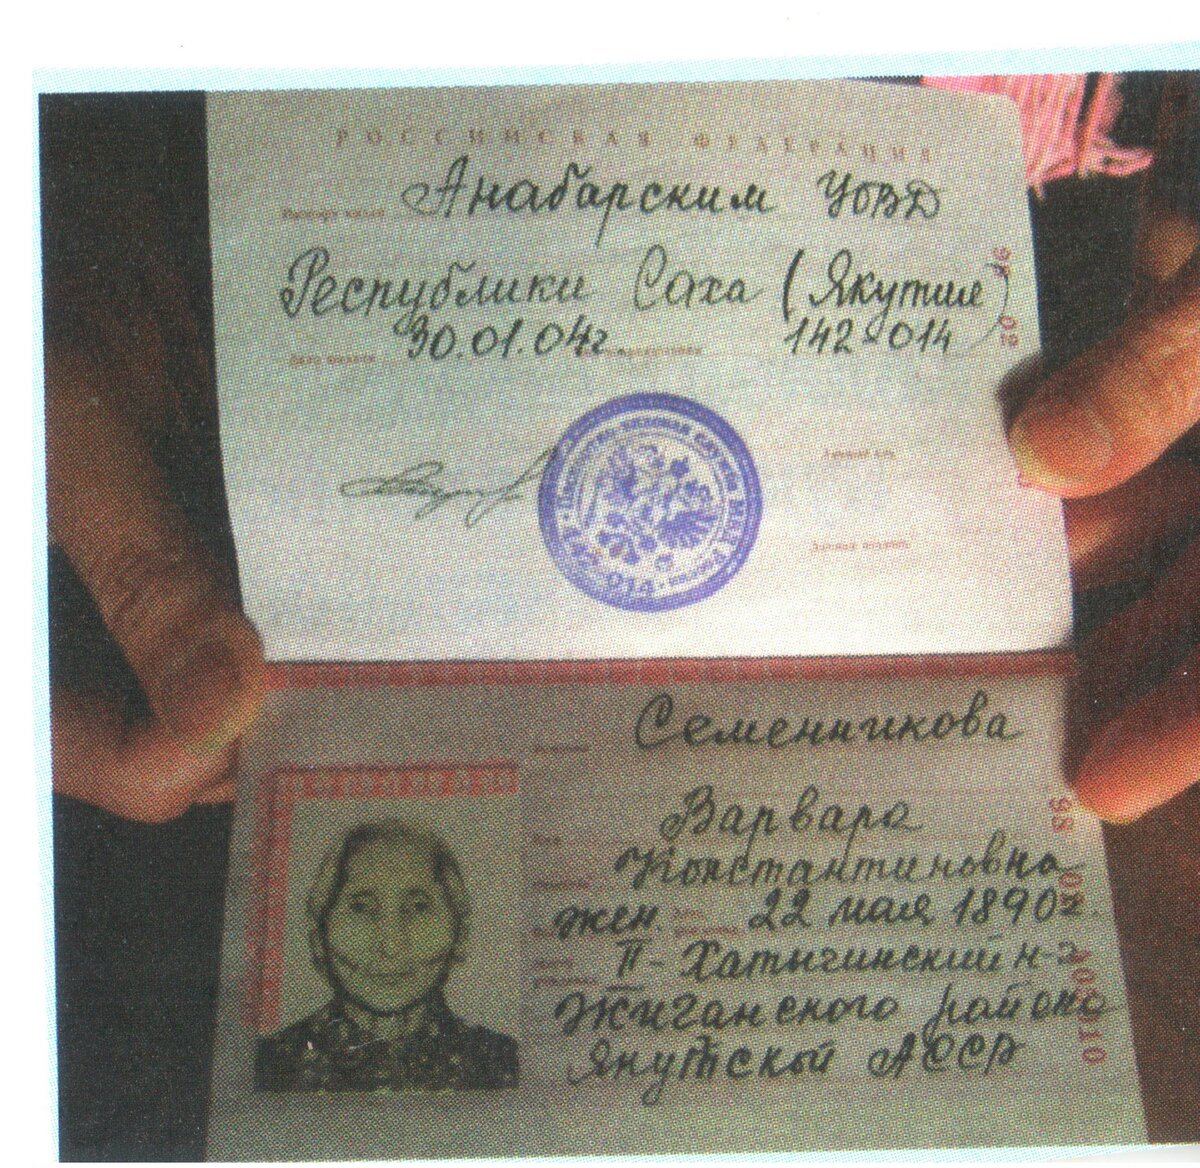 РОССИЙСКАЯ ФЕДЕРАЦИЯ
Паспорт выдан Анабарским УОВД
Республики Саха (Якутия)
Дата выдачи 30.01.04г. 142-014
Личный код
Личная подпись
142-014
98 02
Семенникова
Варвара
Константиновна
жен. 22 мая 1890г.
II-Хатыгинский н-г
Жиганского района
Якутской АССР
98 02